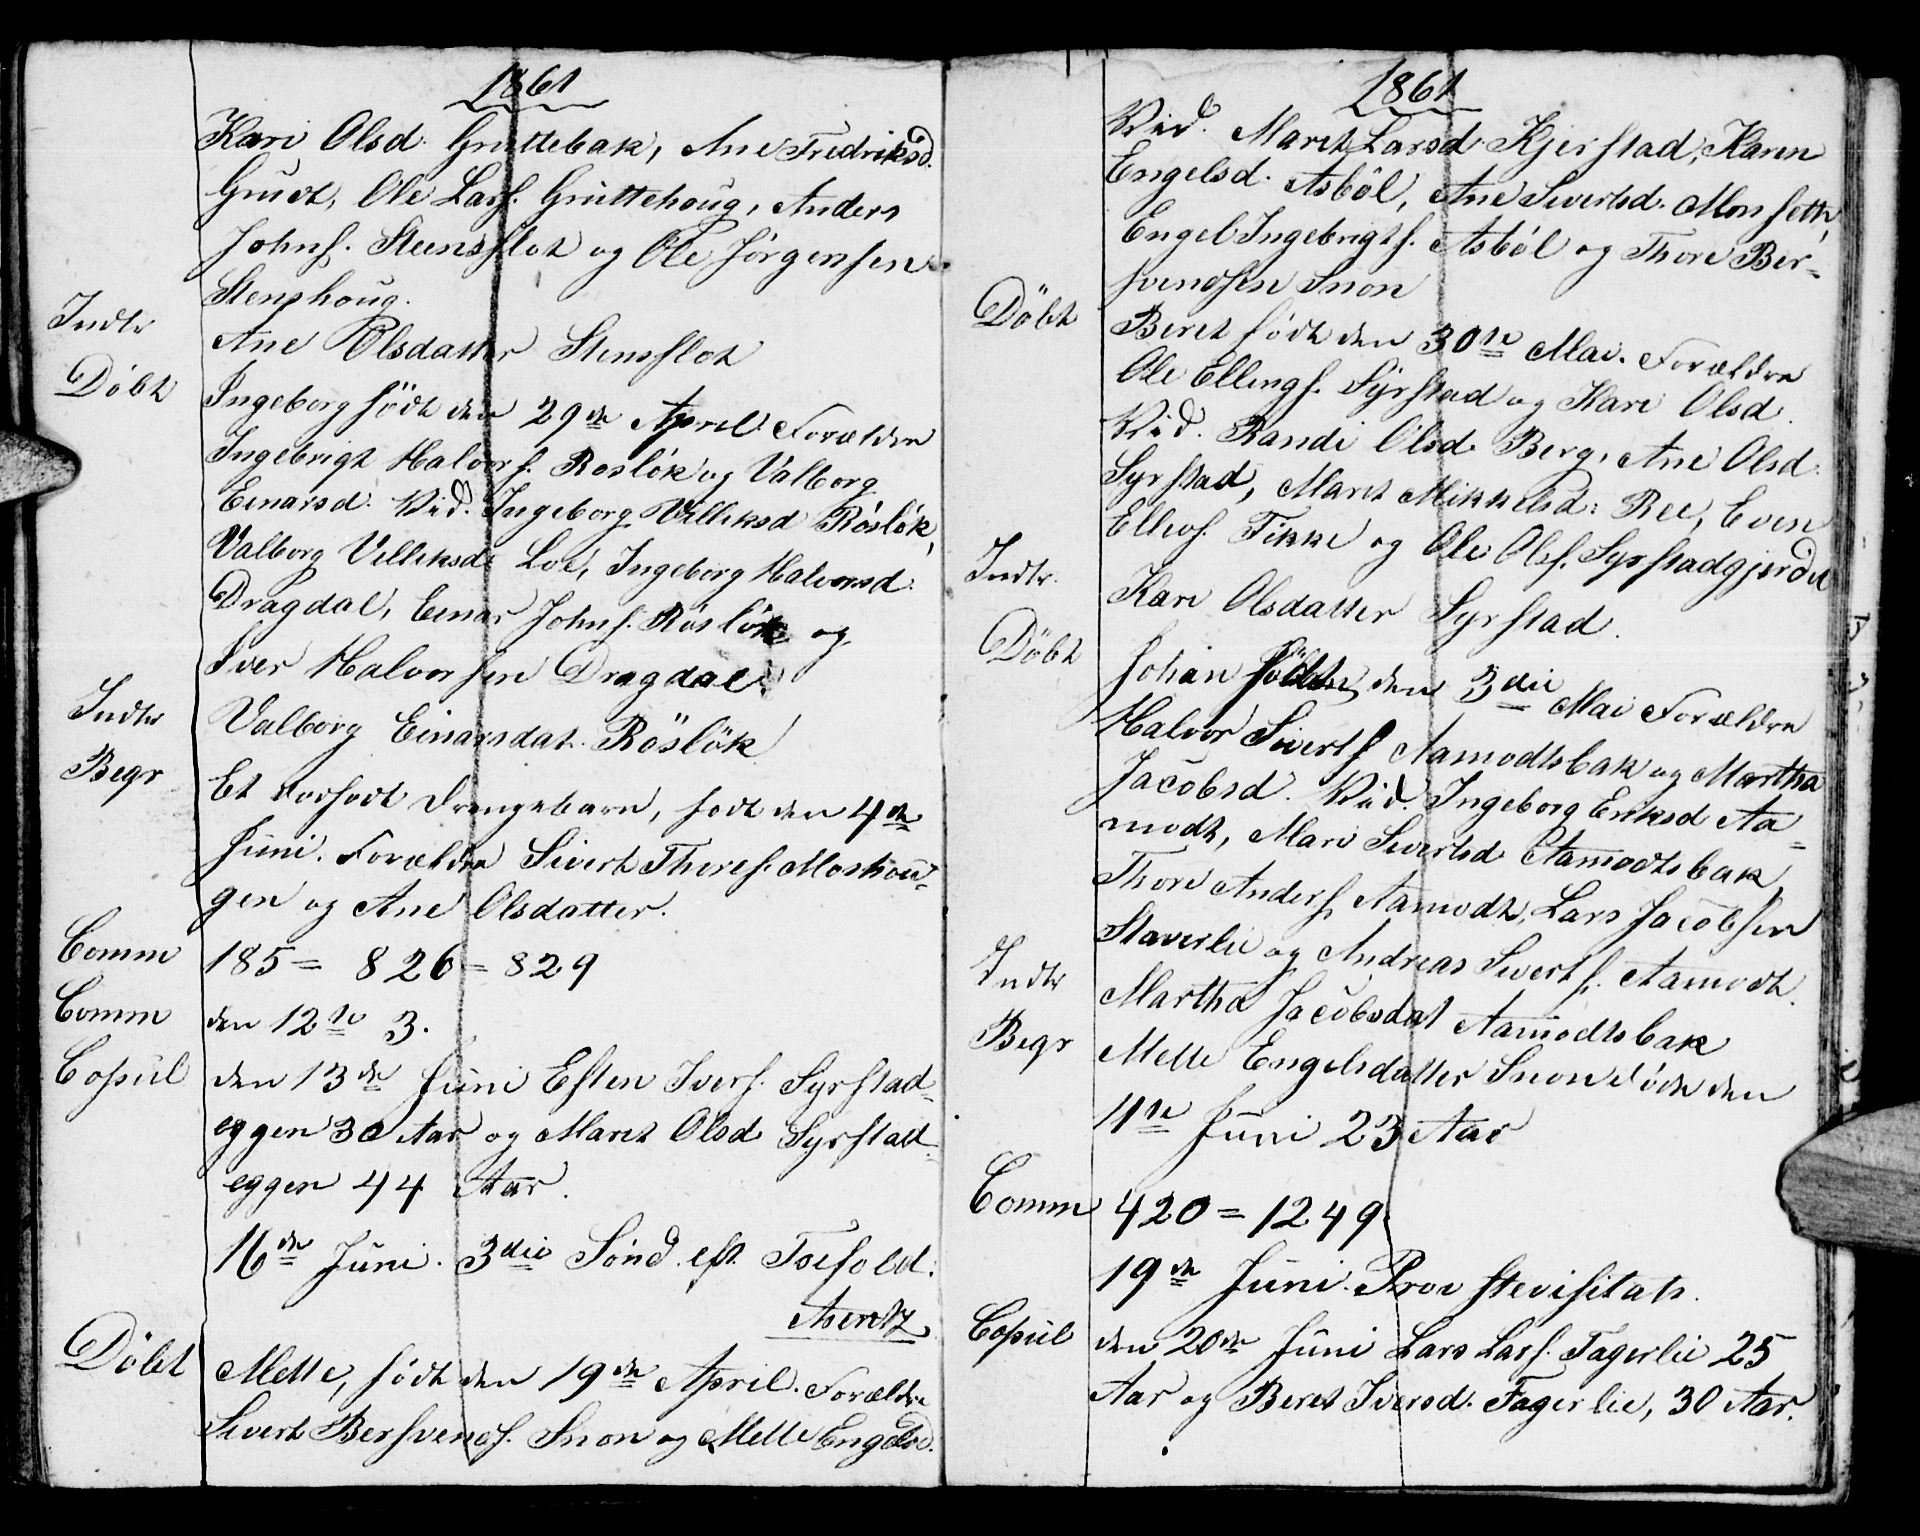 1861
Kari Olsd. Gruttebak, Ane Fredriksd.
Grudt, Ole Lars. Gruttehoug, Anders
Johns. Steensflot og Ole Jørgensen
Stenshoug.
Indtr Ane Olsdatter Stensflot
Döbt Ingeborg födt den 29de April Forældre
Ingebrigt Halvors. Roslök og Valborg
Einarsd. Vid. Ingeborg Villiksd Röslök,
Valborg Villiksd. Loe, Ingeborg Halvorsd.
Dragdal, Einar Johns. Röslök og
Iver Halvorsen Dragdal.
Indtr Valborg Einarsdat. Röslök
Begr Et dødfødt Drengebarn, født den 4de
Juni. Forældre Sivert Thores. Moshou-
gen og Ane Olsdatter.
Comm 185 = 826 = 829
Comm den 12te 3.
Copul den 13de Juni Esten Ivers. Syrstad-
eggen 30 Aar og Marit Olsd Syrstad-
eggen 44 Aar.
16de Juni. 3die Sönd. eft. Trefold.
Döbt Mette, födt den 19de April. Forældre
Sivert Bersvends. Snon og Mette Engelsd.
1861
Vid. Marit Larsd. Kjerstad, Karen
Engelsd. Asböl, Ane Sivertsd. Monseth,
Engel Ingebrigts. Asböl og Thore Ber-
svendsen Snon
Döbt Beret födt den 30te Mai. Forældre
Ole Ellings. Syrstad og Kari Olsd.
Vid. Randi Olsd. Berg, Ane Olsd.
Syrstad, Marit Mikkelsd. Ree, Even
Ellevs. Fikke og Ole Ols. Syrstadgjerdet
Indtr. Kari Olsdatter Syrstad.
Döbt Johan födt den 3die Mai Forældre
Halvor Siverts Aamodtsbak og Martha
Jacobsd. Vid. Ingeborg Eriksd Aa-
modt, Mari Sivertsd Aamodtsbak,
Thore Anders Aamodt, Lars Jacobsen
Staverlie og Andreas Siverts. Aamodt.
Indtr Martha Jacobsdat Aamodtsbak
Begr Mette Engelsdatter Snon døde den
11te Juni 23 Aar
Comm 420 = 1249
19de Juni. Provstevisitats.
Copul den 20de Juni Lars Lars. Fagerlie 25
Aar og Beret Iversd. Fagerlie, 30 Aar.